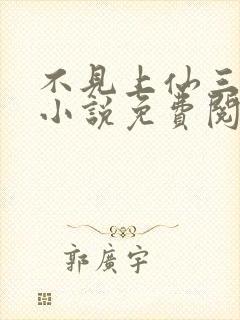 不見上仙三
小說免費閱
郭廣宇